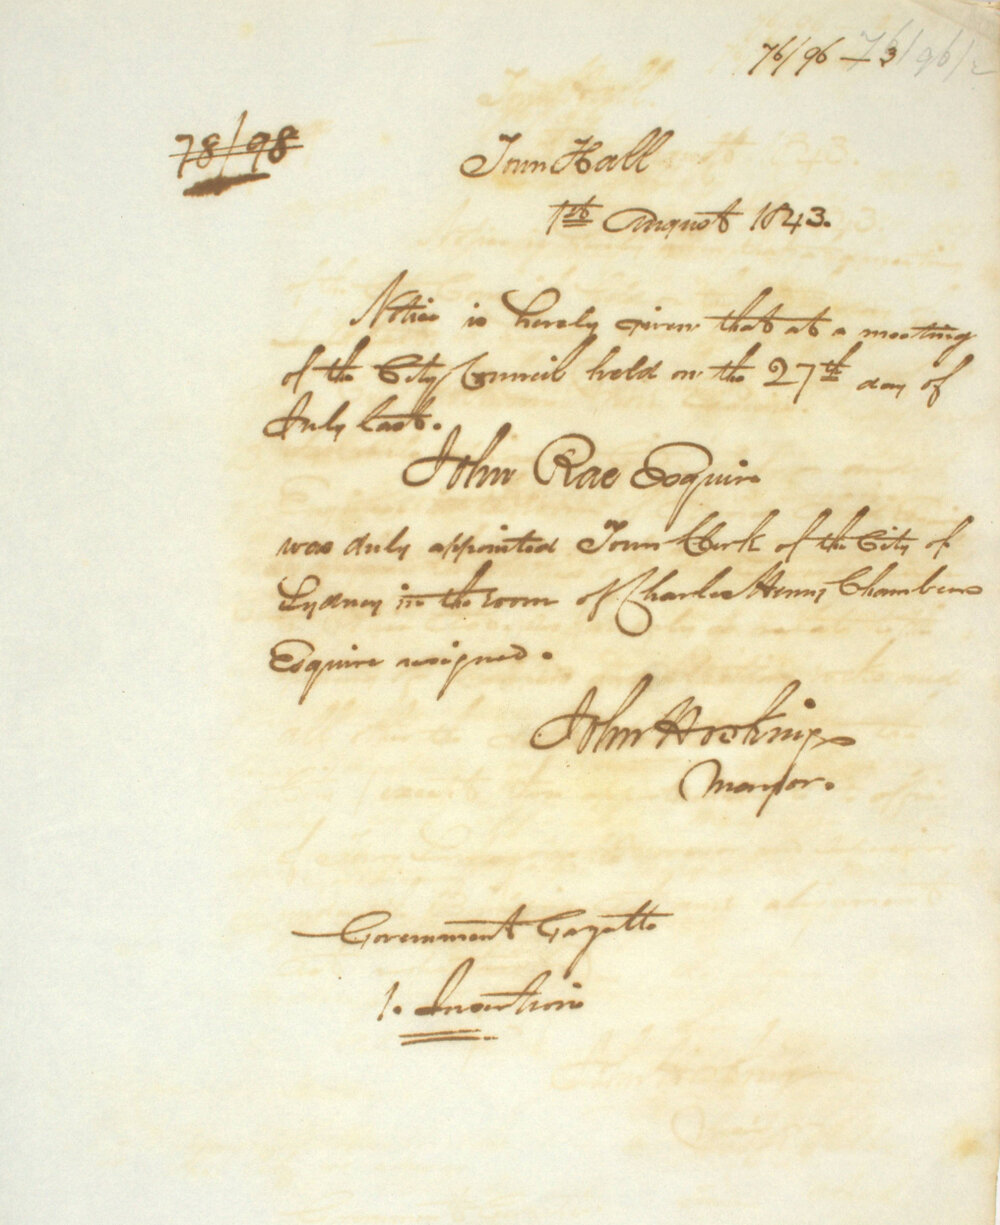 76/96-3 76/96/2
78/98
Town Hall
1st August 1843.
Notice is hereby given that at a meeting
of the City Council held on the 27th day of
July last.
John Rae Esquire
was duly appointed Town Clerk of the City of
Sydney in the room of Charles Henry Chambers
Esquire resigned.
John Hosking
Mayor.
Government Gazette
1. Insertion